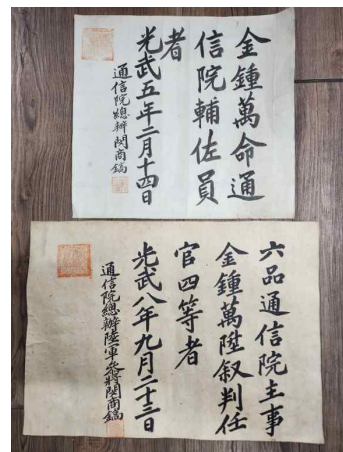 金鍾萬命通
信院輔佐員
者
光武五年二月十四日
通信院總辦閔商鎬
六品通信院主事
金鍾萬陞叙判任
官四等者
光武八年九月二十三日
通信院總辦陸軍參將閔商鎬